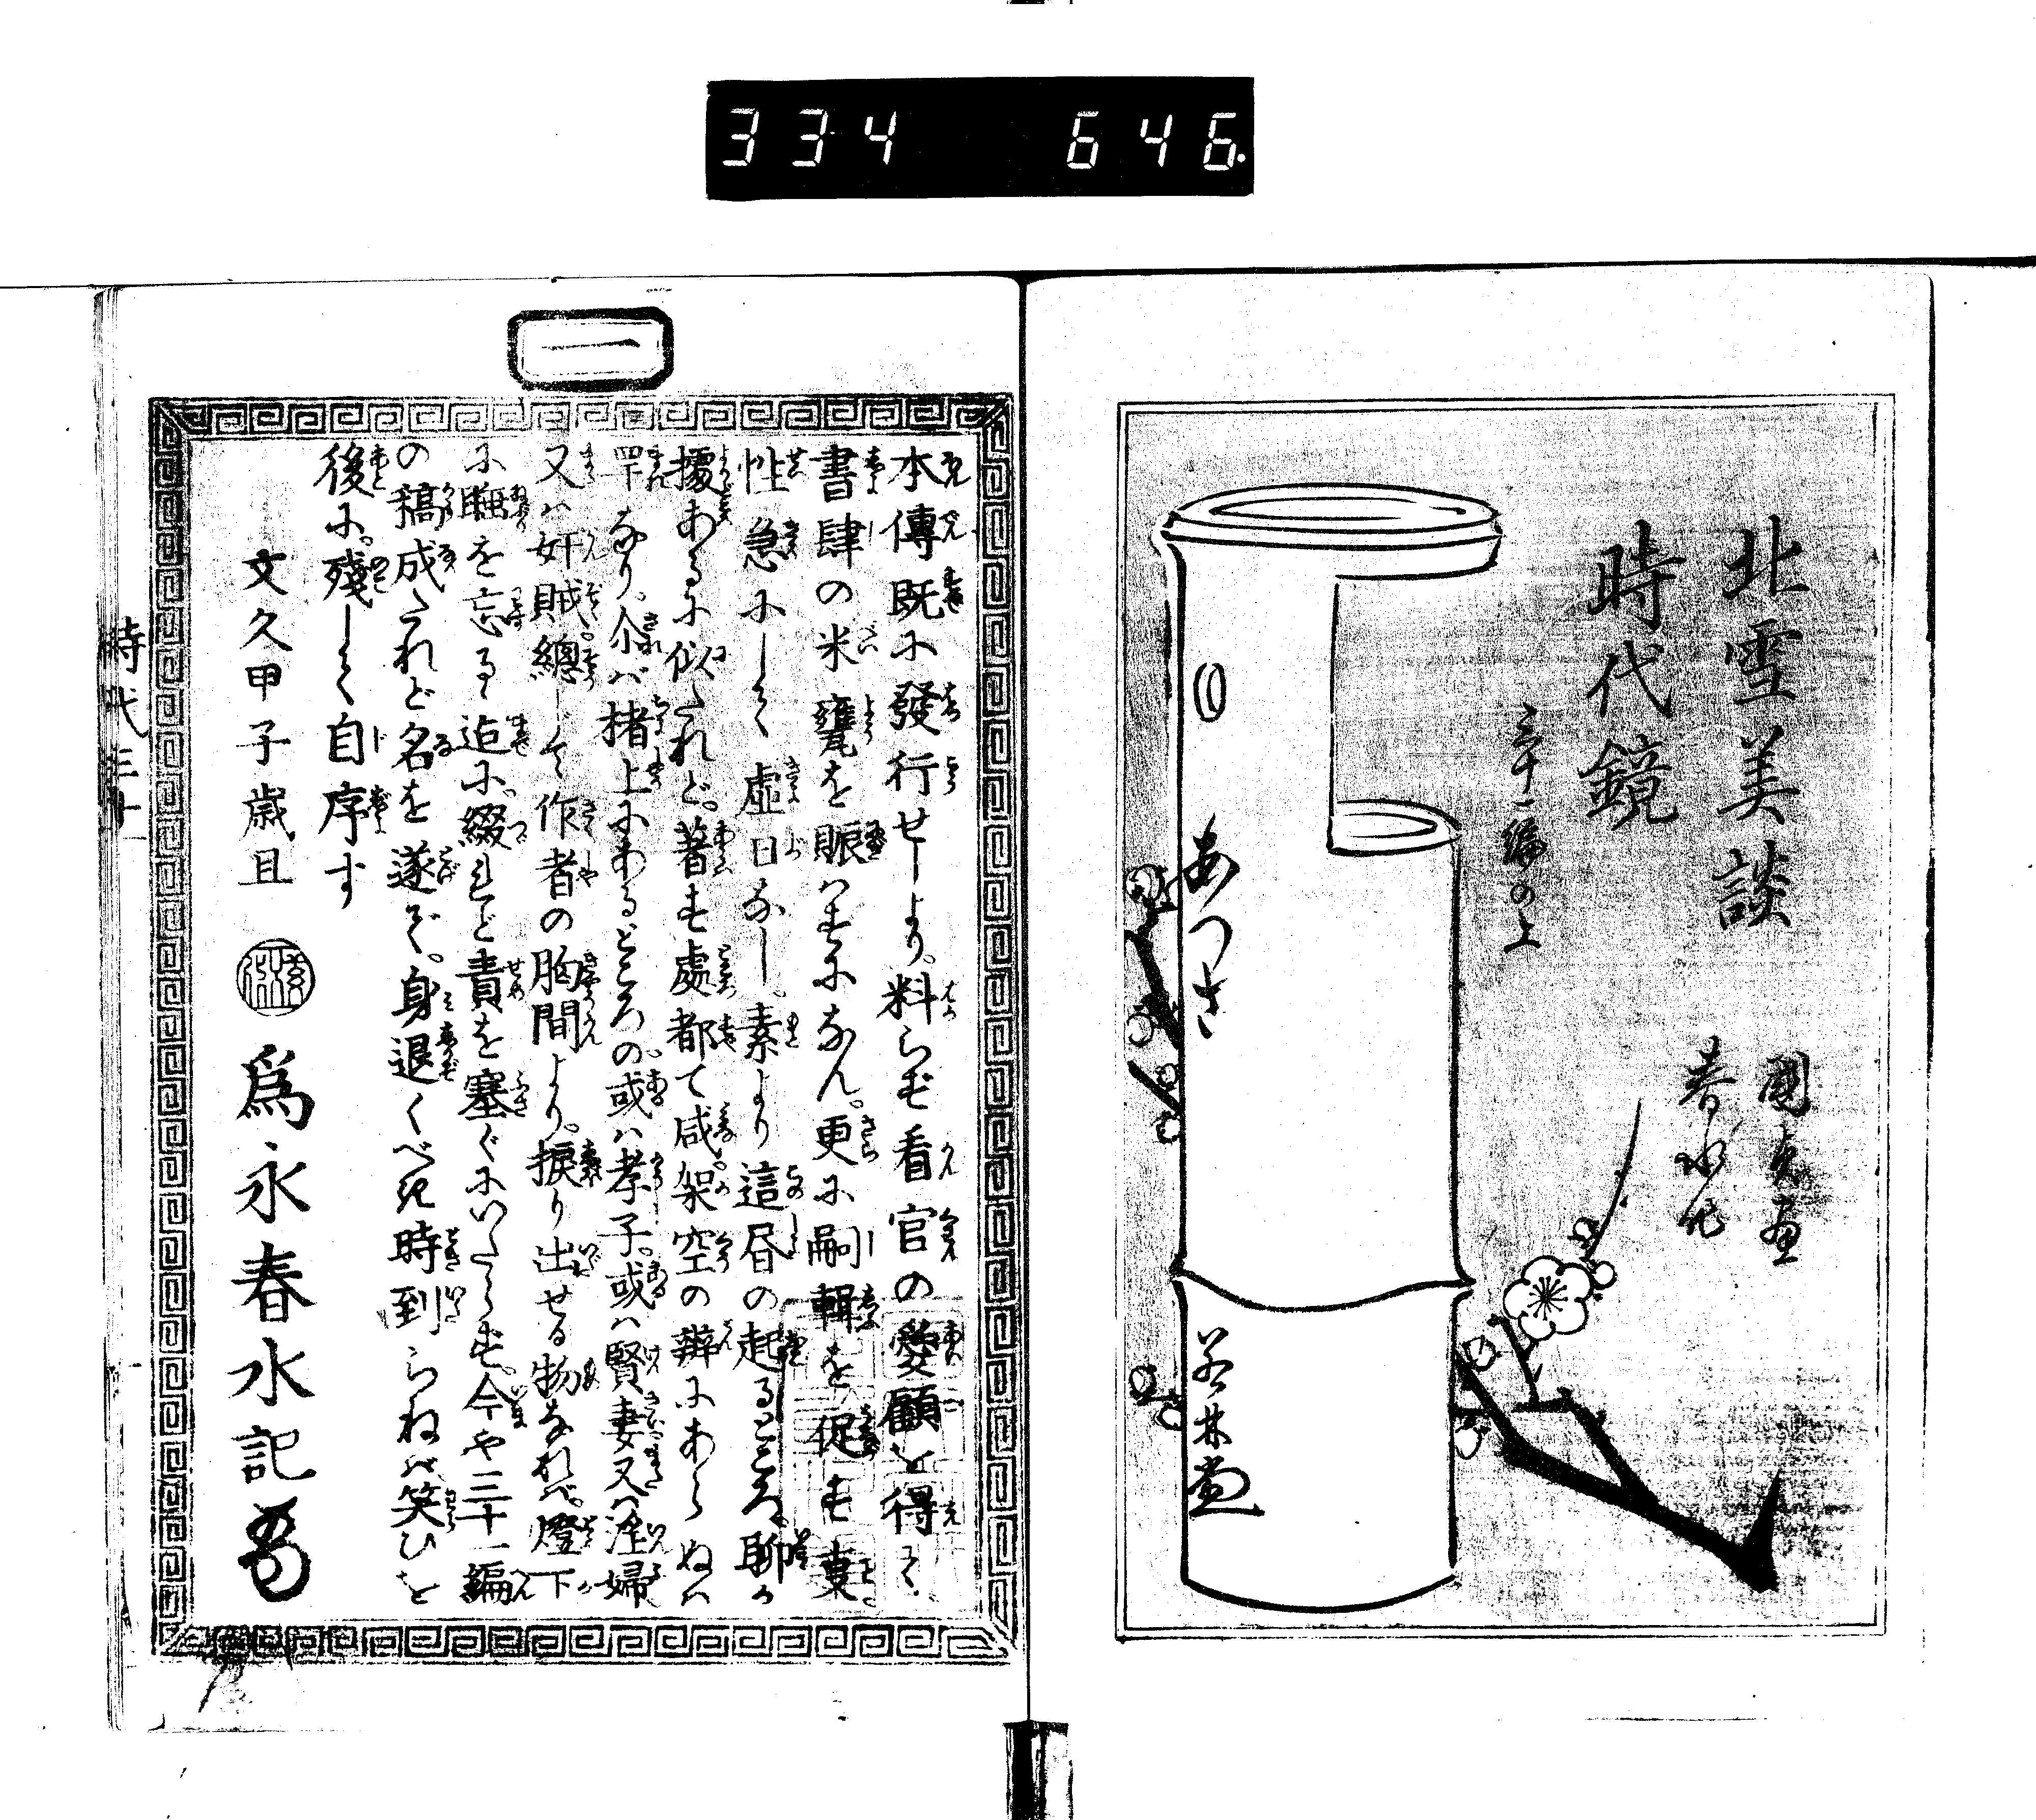 334 646
北雪美談
時代鏡
三十一編の上
國貞画
春水作
若林堂
一
本傳既に發行せしより。料らず看官の愛顧を得て。
書肆の米甕を賑はすになん。更に嗣輯を促す事
性急にして虚日なし。素より這昼の起るところ。聊か
據あるに似たれど。著す處都て咸架空の辨にあらぬは
罕なり。尒ば楮上にあるところの。或は孝子。或は賢妻又は淫婦
又は奸賊。總じて作者の胸間より。捩り出せる物なれば。燈下
に睡を忘るゝ迄に。綴れど責を塞ぐにいたらず。今や三十一編
の稿成たれど名を遂て。身退くべき時到らねば笑ひを
後に。殘して自序す
文久甲子歳旦
爲永春水記
時代三十一